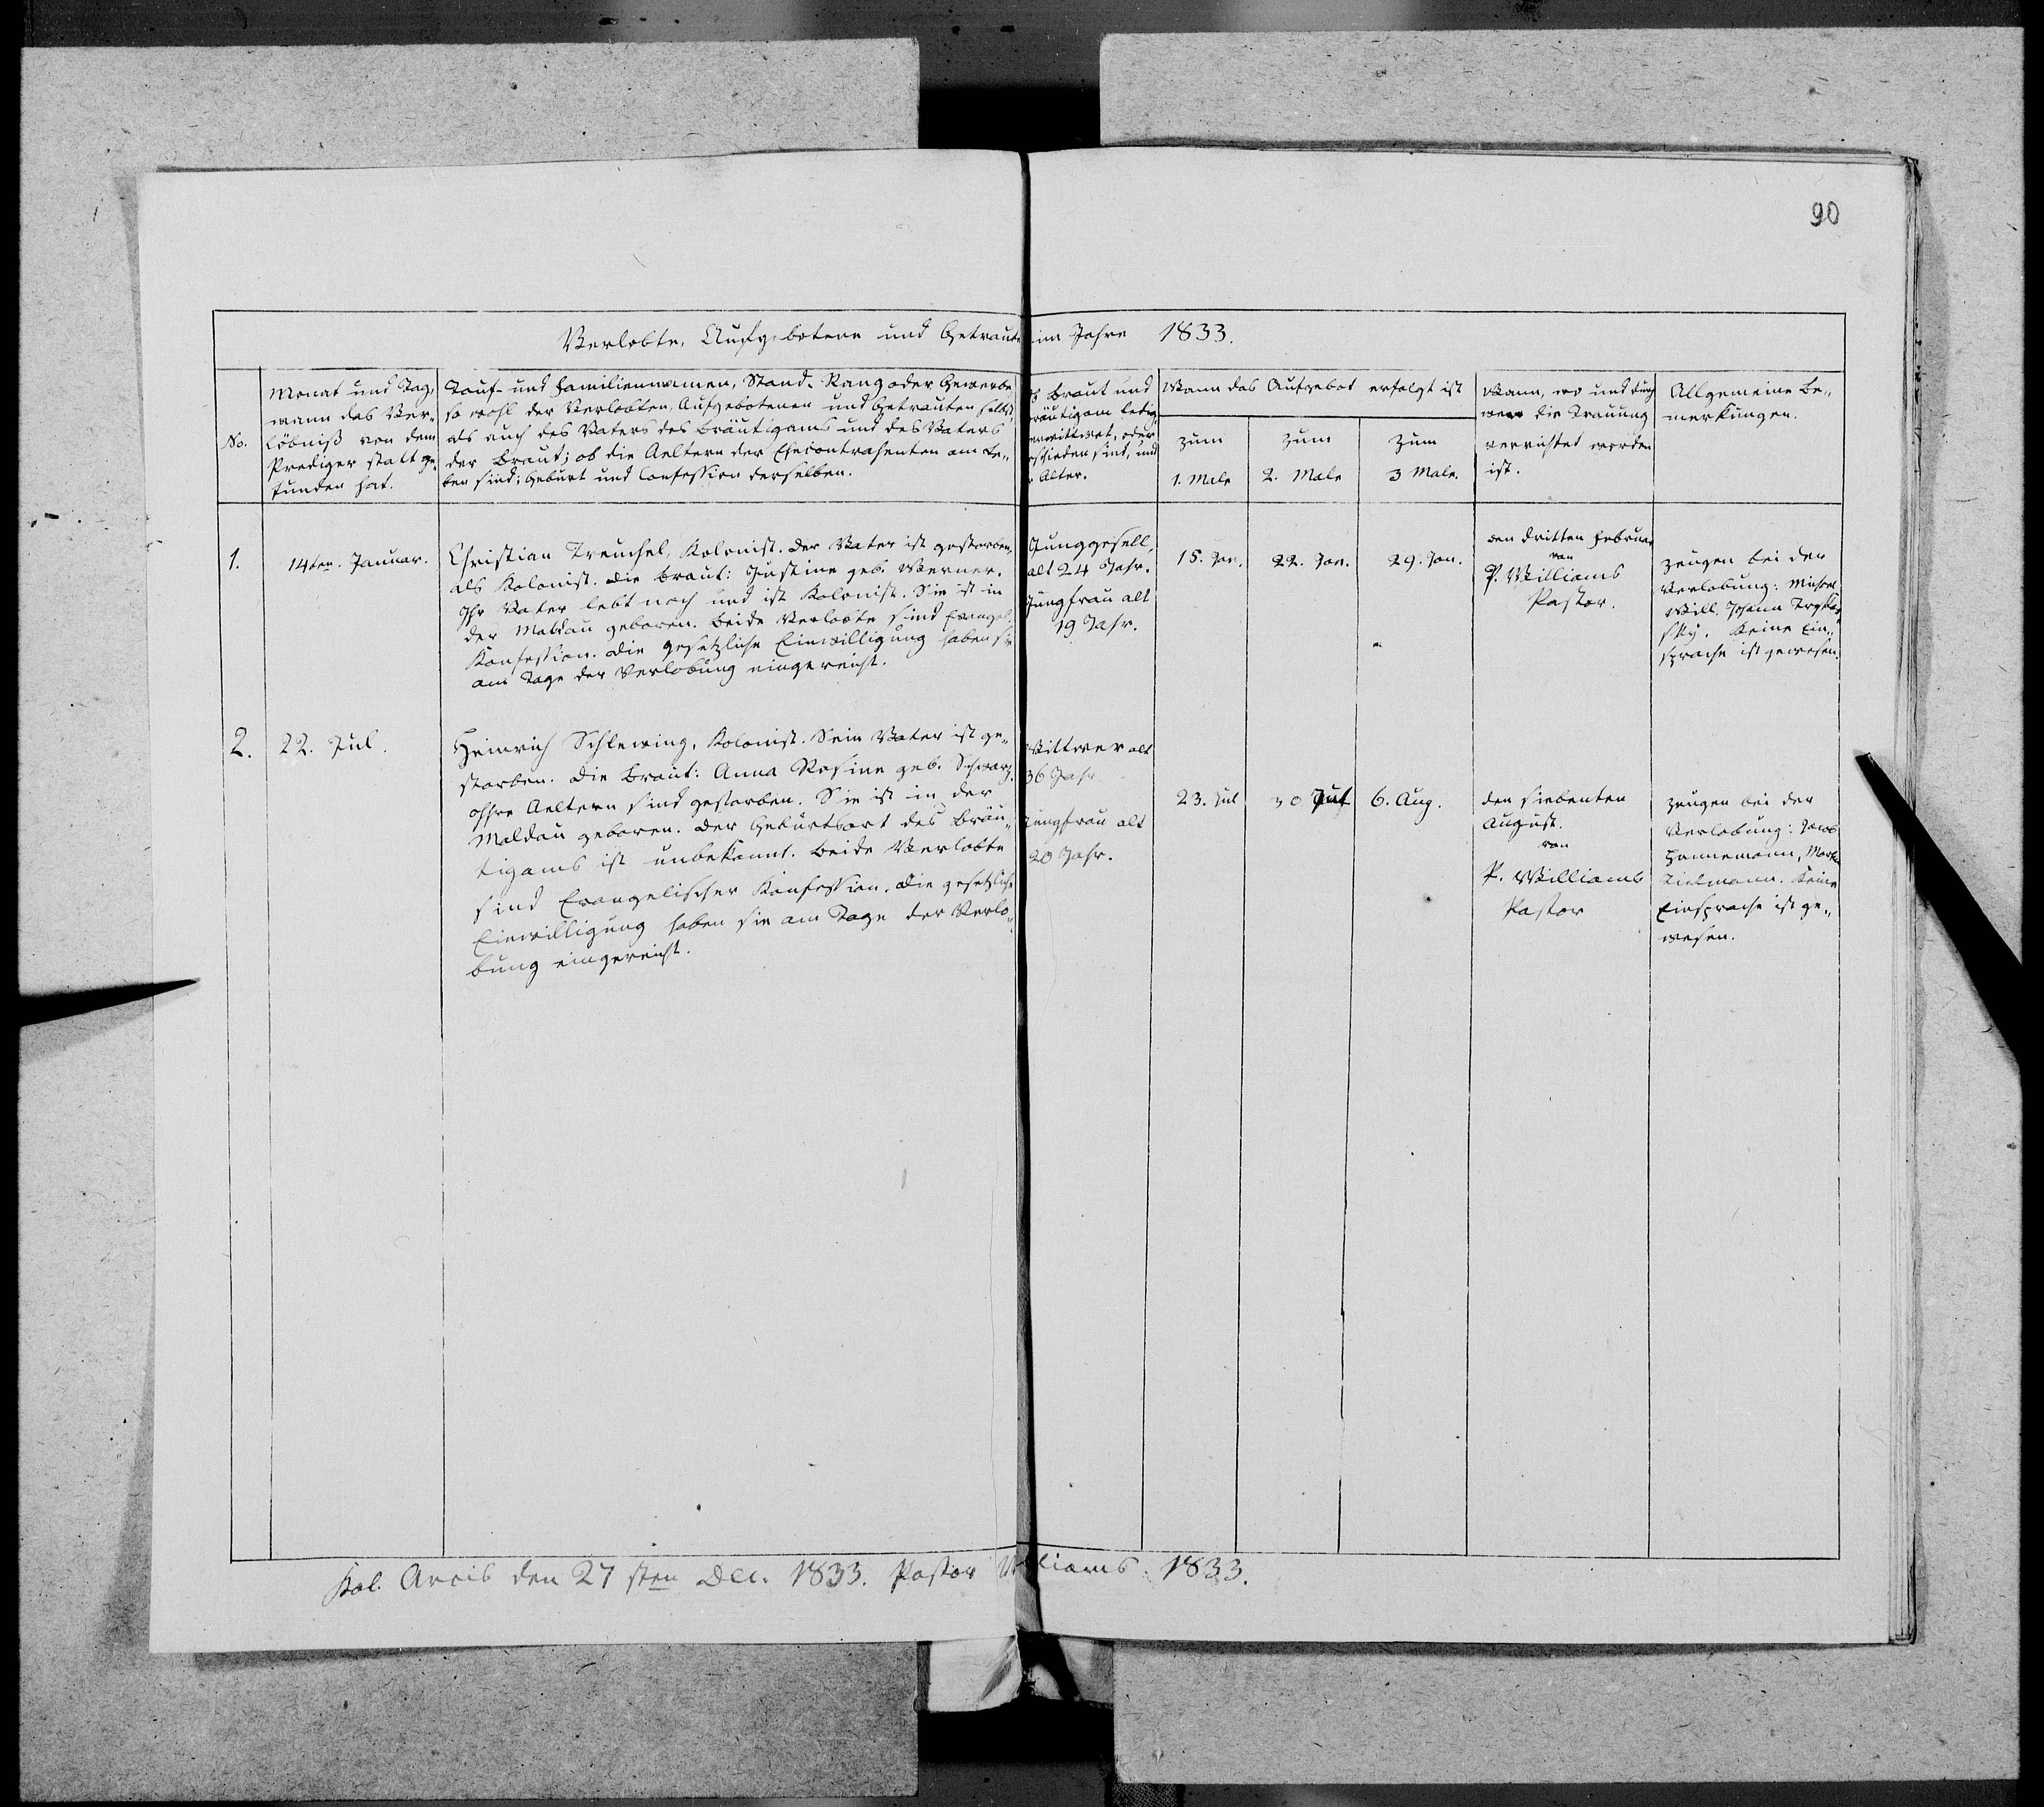 90
Verlobte, Aufgebotene und Getraute im Jahre 1833.
No.
Monat und Tag,
wann das Ver-
löbniß von dem
Prediger statt ge-
funden hat.
Tauf- und Familiennamen, Stand, Rang oder Gewerbe
so wohl der Verlobten, Aufgebotenen und Getrauten selbst,
als auch des Vaters des Bräutigams und des Vaters
der Braut; ob die Aeltern der Ehecontrahenten am Le-
ben sind; Geburt und Confession derselben.
Braut und
räutigam ledig,
erwittwet, oder
schieden sind, und
Alter.
Wann das Aufgebot erfolgt ist
zum
1. Male
zum
2. Male
zum
3 Male.
Wann, wo und durch
wen die Trauung
verrichtet worden
ist.
Allgemeine Be-
merkungen.
1.
14ten. Januar.
Christian Treuchel, Kolonist. Der Vater ist gestorben,
als Kolonist. Die Braut: Justine geb. Werner.
Ihr Vater lebt noch und ist Kolonist. Sie ist in
der Moldau geboren. Beide Verlobte sind Evangel.
Konfession. Die gesetzliche Einwilligung haben sie
am Tage der Verlobung eingereicht.
Junggesell,
alt 24 Jahr.
Jungfrau alt
19 Jahr.
15. Jan.
22. Jan.
29. Jan.
den dritten Februar
von
P. Williams
Pastor.
Zeugen bei der
Verlobung: Michael
Will. Johann
sky. Keine Ein-
sprache ist gewesen.
2.
22. Jul.
Heinrich Schlewing, Kolonist. Sein Vater ist ge-
storben. Die Braut: Anna Rosine geb. Schwarz.
Ihre Aeltern sind gestorben. Sie ist in der
Moldau geboren. Der Geburtsort des Bräu-
tigams ist unbekannt. Beide Verlobte
sind Evangelischer Konfession. Die gesetzliche
Einwilligung haben sie am Tage der Verlo-
bung eingereicht.
Wittwer alt
36 Jahr
Jungfrau alt
20 Jahr.
23. Jul
30 Jul
6. Aug.
den siebenten
August.
von
P. Williams
Pastor
Zeugen bei der
Verlobung: Jacob
Hannemann, Martin
Tielmann. Keine
Einsprache ist ge-
wesen.
Kol. Arcis den 27sten Dec. 1833. Pastor Williams. 1833.